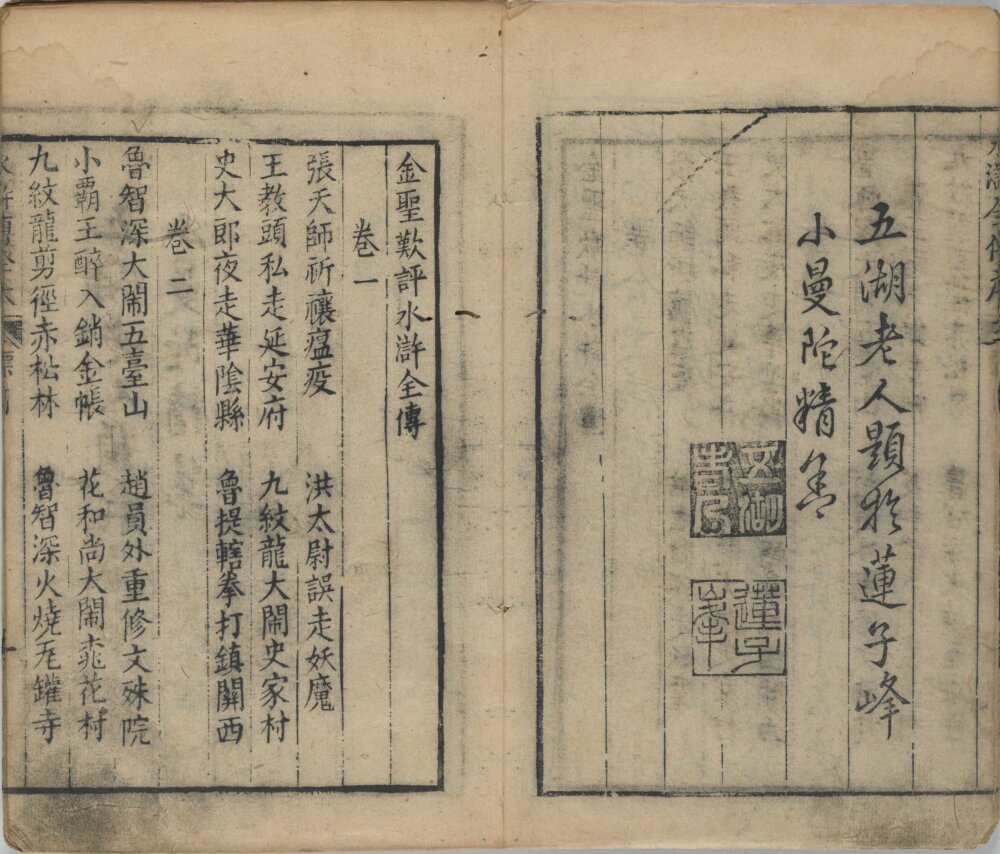 五湖老人題於蓮子峰
小曼陀精舍
五湖老人
蓮子峰
金聖歎評水滸全傳
卷一
張天師祈禳瘟疫 洪太尉誤走妖魔
王教頭私走延安府 九紋龍大鬧史家村
史大郎夜走華陰縣 魯提轄拳打鎮關西
卷二
魯智深大鬧五臺山 趙員外重修文殊院
小霸王醉入銷金帳 花和尚大鬧桃花村
九紋龍剪徑赤松林 魯智深火燒瓦罐寺